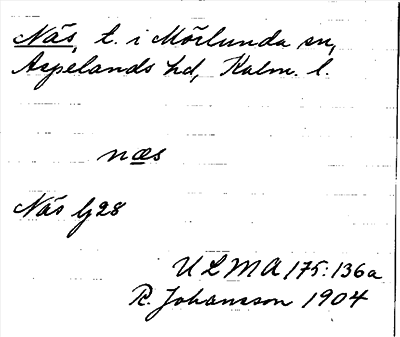 Näs, t. i Mörlunda sn,
Aspelands hd, Kalm. l.
næs
Näs lj 28
ULMA 175:136a
R. Johansson 1904